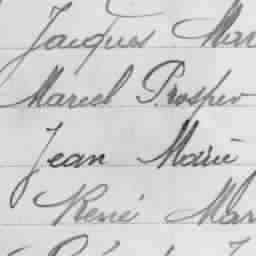 Jacques Mar
Marcel Prosper
Jean Marie
René Mar